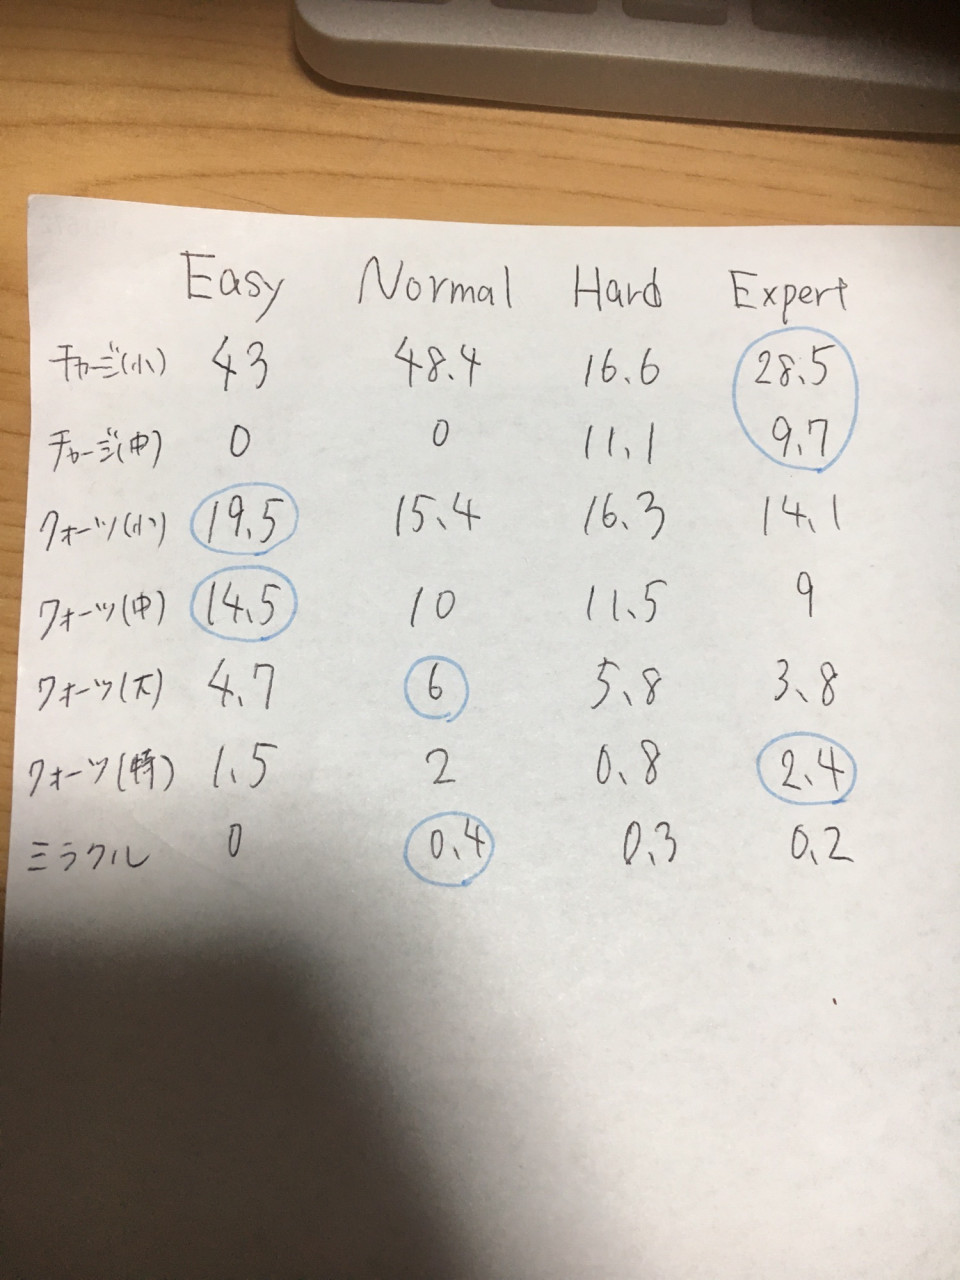 Easy Normal Hard Expert
チャージ(小) 43 48.4 16.6 28.5
チャージ(中) 0 0 11.1 9.7
クォーツ(小) 19.5 15.4 16.3 14.1
クォーツ(中) 14.5 10 11.5 9
クォーツ(大) 4.7 6 5.8 3.8
クォーツ(特) 1.5 2 0.8 2.4
ミラクル 0 0.4 0.3 0.2